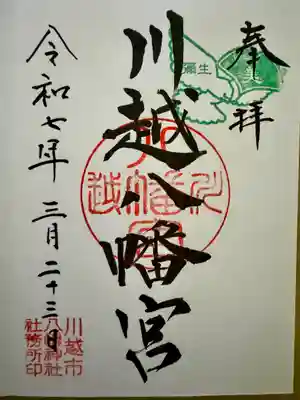 奉拝
彌生
川越八幡宮
令和七年 三月二十三日
川越市
八幡神社
社務所印